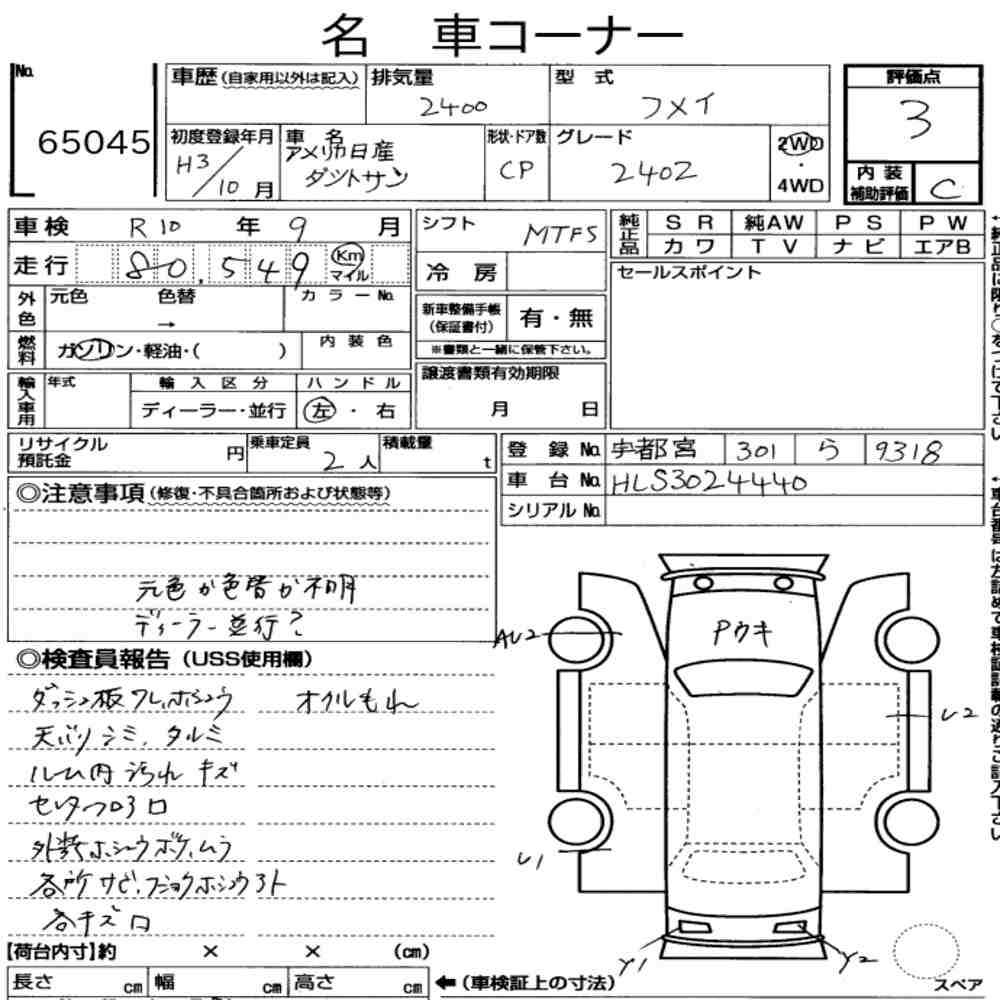 名 車コーナー
No. 65045
車歴(自家用以外は記入) 排気量 2400 型 式 フメイ
評価点 3
初度登録年月 H3/10月 車 名 アメリカ日産 ダットサン 形状・ドア数 CP グレード 240Z 2WD・4WD
内装補助評価 C
車検 R10 年 9 月
走行 80,549 Km マイル
シフト MTF5
冷 房
純正品 SR 純AW PS PW
カワ TV ナビ エアB
セールスポイント
外色 元色 色替 → カラーNo.
新車整備手帳(保証書付) 有・無
※書類と一緒に保管下さい。
燃料 ガソリン・軽油・( ) 内装色
輸入車用 年式 輸入区分 ハンドル
ディーラー・並行 左・右
譲渡書類有効期限
月 日
リサイクル預託金 円 乗車定員 2人 積載量 t
登 録 No. 宇都宮 301 ら 9318
車 台 No. HLS3024440
シリアル No.
◎注意事項(修復・不具合箇所および状態等)
元色か色替か不明
ディーラー並行?
◎検査員報告(USS使用欄)
ダッシュ板ワレ、ホシュウ オイルもれ
天バリシミ、タルミ
ルーム内 汚れ キズ
外装ホシュウボケ、ムラ
各所サビ、フショクホシュウアト
各キズ
Pウキ
AU2
U2
U1
Y1
Y2
スペア
【荷台内寸】約 × × (cm)
長さ cm 幅 cm 高さ cm ←(車検証上の寸法)